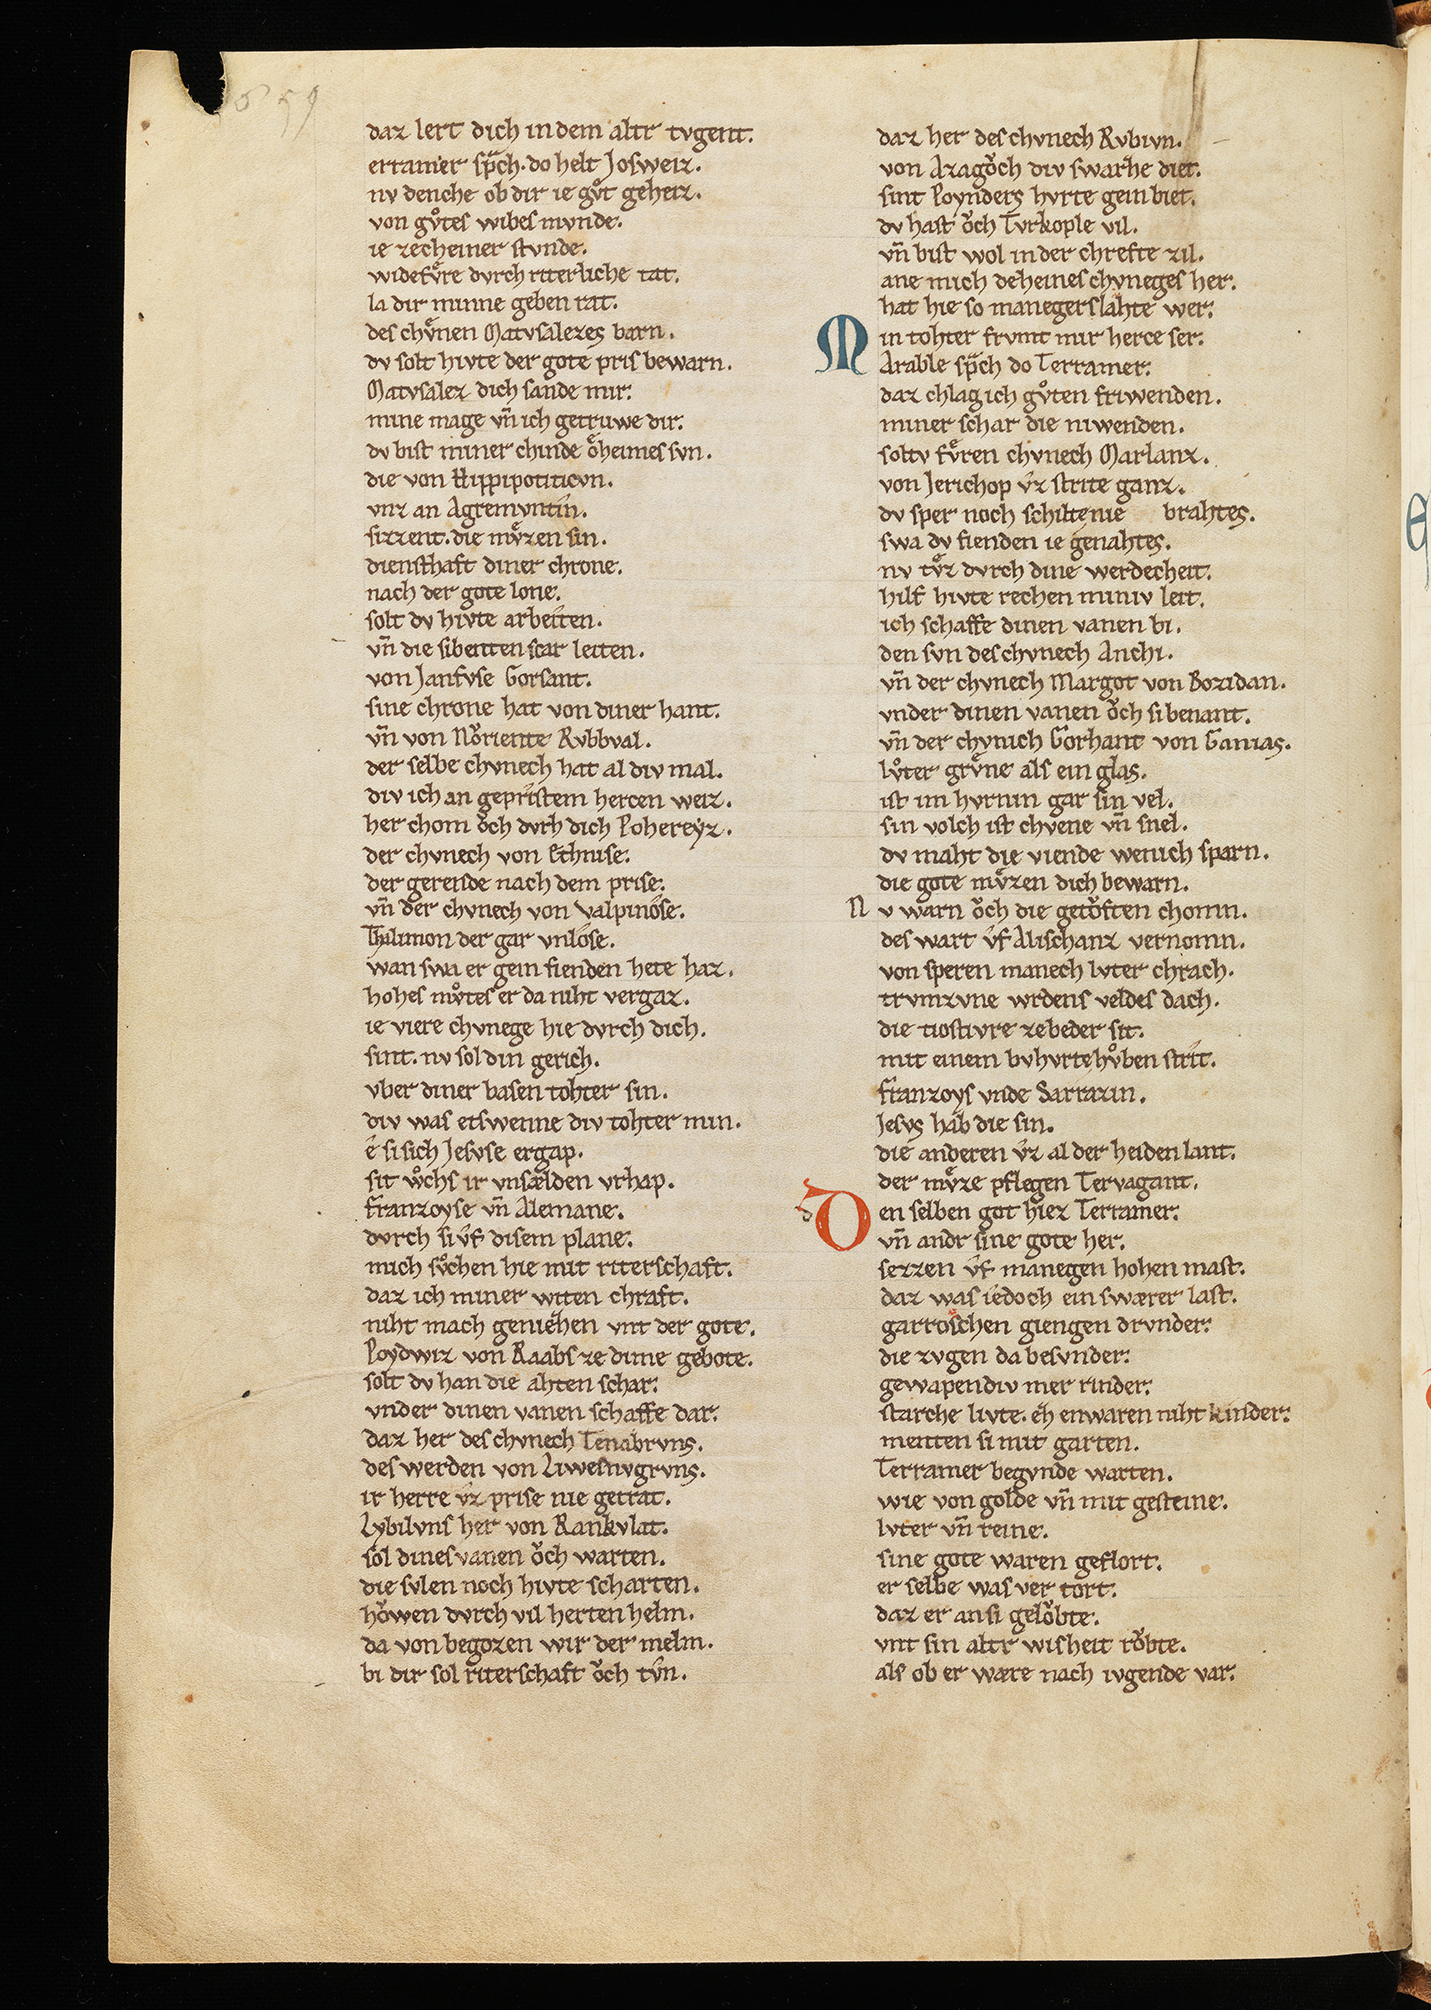 659
daz lert dich in dem altr tvgent.
erramer spͣch. do helt Josweiz.
nv denche ob dir ie gvͦt geheiz.
von gvͦtes wibes mvnde.
ie zecheiner stvnde.
widefvͤre dvrch riterliche tat.
la dir minne geben rat.
des chvͤnen Matvsalezes barn.
dv solt hivte der gote pris bewarn.
Matvsalez dich sande mir.
mine mage vn̄ ich getruwe dir.
dv bist miner chinde oͤheimes svn.
die von Hippipotiticvn.
vnz an Agremvntin.
sizzent. die mvͤzen sin.
diensthaft diner chrone.
nach der gote lone.
solt dv hivte arbeiten.
vn̄ die sibenten scar leiten.
von Janfvse Gorsant.
sine chrone hat von diner hant.
vn̄ von Noͮriente Rvbbval.
der selbe chvnech hat al div mal.
div ich an gepristem hercen weiz.
her chom oͮch dvrh dich Pohereẏz.
der chvnech von Ethnise.
der gereisde nach dem prise.
vn̄ der chvnech von Valpinose.
Thalimon der gar vnlose.
wan swa er gein fienden hete haz.
hohes mvͦtes er da niht vergaz.
ie viere chvnege hie dvrch dich.
sint. nv sol din gerich.
vber diner basen tohter sin.
div was etswenne div tohter min.
é si sich Jesvse ergap.
sit wͦchs ir vnsælden vrhap.
franzoyse vn̄ Alemane.
dvrch si vf disem plane.
mich svͦchen hie mit riterschaft.
daz ich miner witen chraft.
niht mach geniehen vnt der gote.
Poydwiz von Raabs ze dime gebote.
solt dv han die ahten schar.
vnder dinen vanen schaffe dar.
daz her des chvnech Tenabrvns.
des werden von Liwesnvgrvns.
ir herre vz prise nie getrat.
Lybilvns her von Rankvlat.
sol dines vanen oͮch warten.
die svlen noch hivte scharten.
hoͮwen dvrch vil herten helm.
da von begozen wir der melm.
bi dir sol riterschaft oͮch tvn.
daz her des chvnech Rvbivn.
von Azagoͮch div swarhe diet.
sint Poynders hvrte gein biet.
dv hast oͮch Tvrkople vil.
vn̄ bist wol in der chrefte zil.
ane mich deheines chvneges her.
hat hie so maneger slahte wer.
Min tohter frvmt mir herce ser.
Arable spͣch do Terramer.
daz chlag ich gvͦten friwenden.
miner schar die niwenden.
soltv fvͤren chvnech Marlanz.
von Jerichop vz strite ganz.
dv sper noch schilte nie brahtes.
swa dv fienden ie genahtes.
nv tvͤz dvrch dine werdecheit.
hilf hivte rechen miniv leit.
ich schaffe dinen vanen bi.
den svn des chvnech Anchi.
vn̄ der chvnech Margot von Bozidan.
vnder dinen vanen oͮch si benant.
vn̄ der chvnich Gorhant von Ganias.
lvͦter grvͤne als ein glas.
ist im hvrnin gar sin vel.
sin volch ist chvene vn̄ snel.
dv maht die viende wenich sparn.
die gote mvͤzen dich bewarn.
Nv warn oͮch die getoͮften chomn.
des wart vf Alischanz vernomn.
von speren manech lvter chrach.
trvmzvne wrdens veldes dach.
die tiostivre zebeder sit.
mit einem bvhvrte hvͦben strit.
franzoys vnde Sarrazin.
Jesvs hab die sin.
die anderen vz al der heiden lant.
der mvͤze pflegen Tervagant.
Den selben got hiez Terramer.
vn̄ andr sine gote her.
sezzen vf manegen hohen mast.
daz was iedoch ein swærer last.
garroschen giengen drvnder.
die zvgen da besvnder.
gewapendiv mer rinder.
starche livte. eh enwaren niht kinder.
menten si mit garten.
Terramer begvnde warten.
wie von golde vn̄ mit gesteine.
lvter vn̄ reine.
sine gote waren geflort.
er selbe was ver tort.
daz er an si geloͮbte.
vnt sin altr wisheit roͮbte.
als ob er wære nach ivgende var.